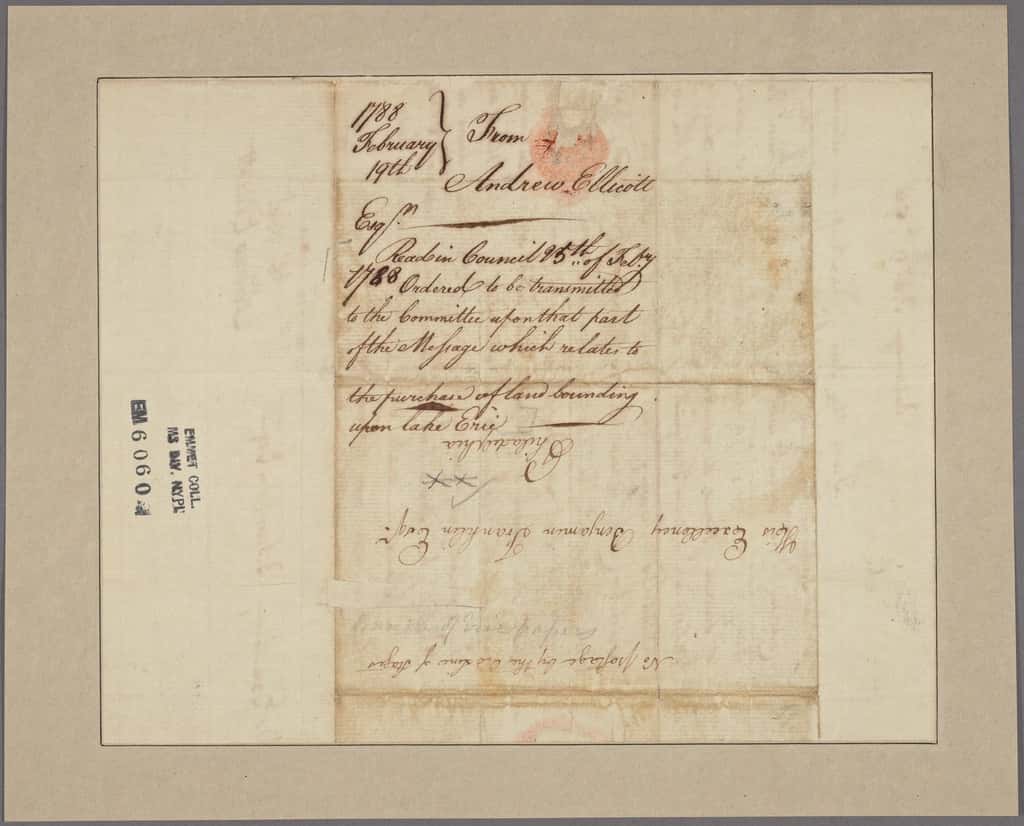 1788
February
19th
From
Andrew Ellicott
Esqr.
Read in Council 25th of Feby
1788 Ordered to be transmitted
to the Committee upon that part
of the Message which relates to
the purchase of land bounding
upon lake Erie
EMMET COLL.
MS DIV. NYPL
EM 6060
No postage by the Old Line of stages
His Excellency Benjamin Franklin Esqr.
Philadelphia